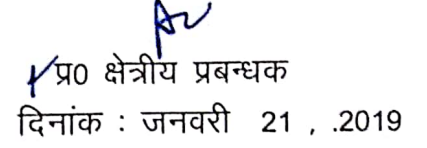 प्र0 क्षेत्रीय प्रबन्धक
दिनांक : जनवरी 21 , .2019